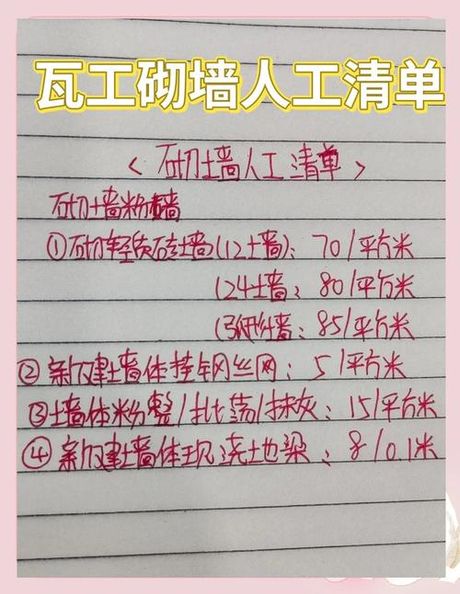 瓦工砌墙人工清单
<砌墙人工清单>
砌墙粉墙
①砌轻质砖墙(12墙): 70/平方米
(24墙: 80/平方米
(弧形墙: 85/平方米
②新建墙体挂钢丝网: 5/平方米
③墙体粉整/批荡/抹灰: 15/平方米
④新建墙体现浇地梁: 8/0.1米